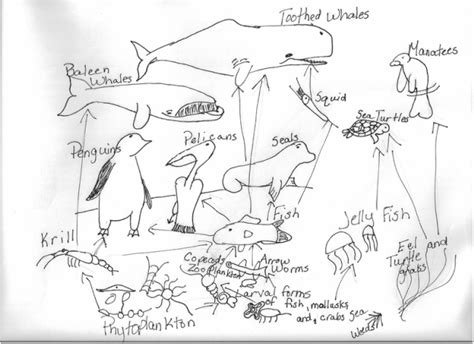 Toothed Whales
Manatees
Baleen
Whales
Squid
Sea Turtles
Penguins
Pelicans
Seals
Fish
Jelly Fish
Krill
Copepods
Zooplankton
Arrow
Worms
Eel and
Turtle
grass
Larval forms
of fish, mollusks,
and crabs sea
Weeds
Phytoplankton